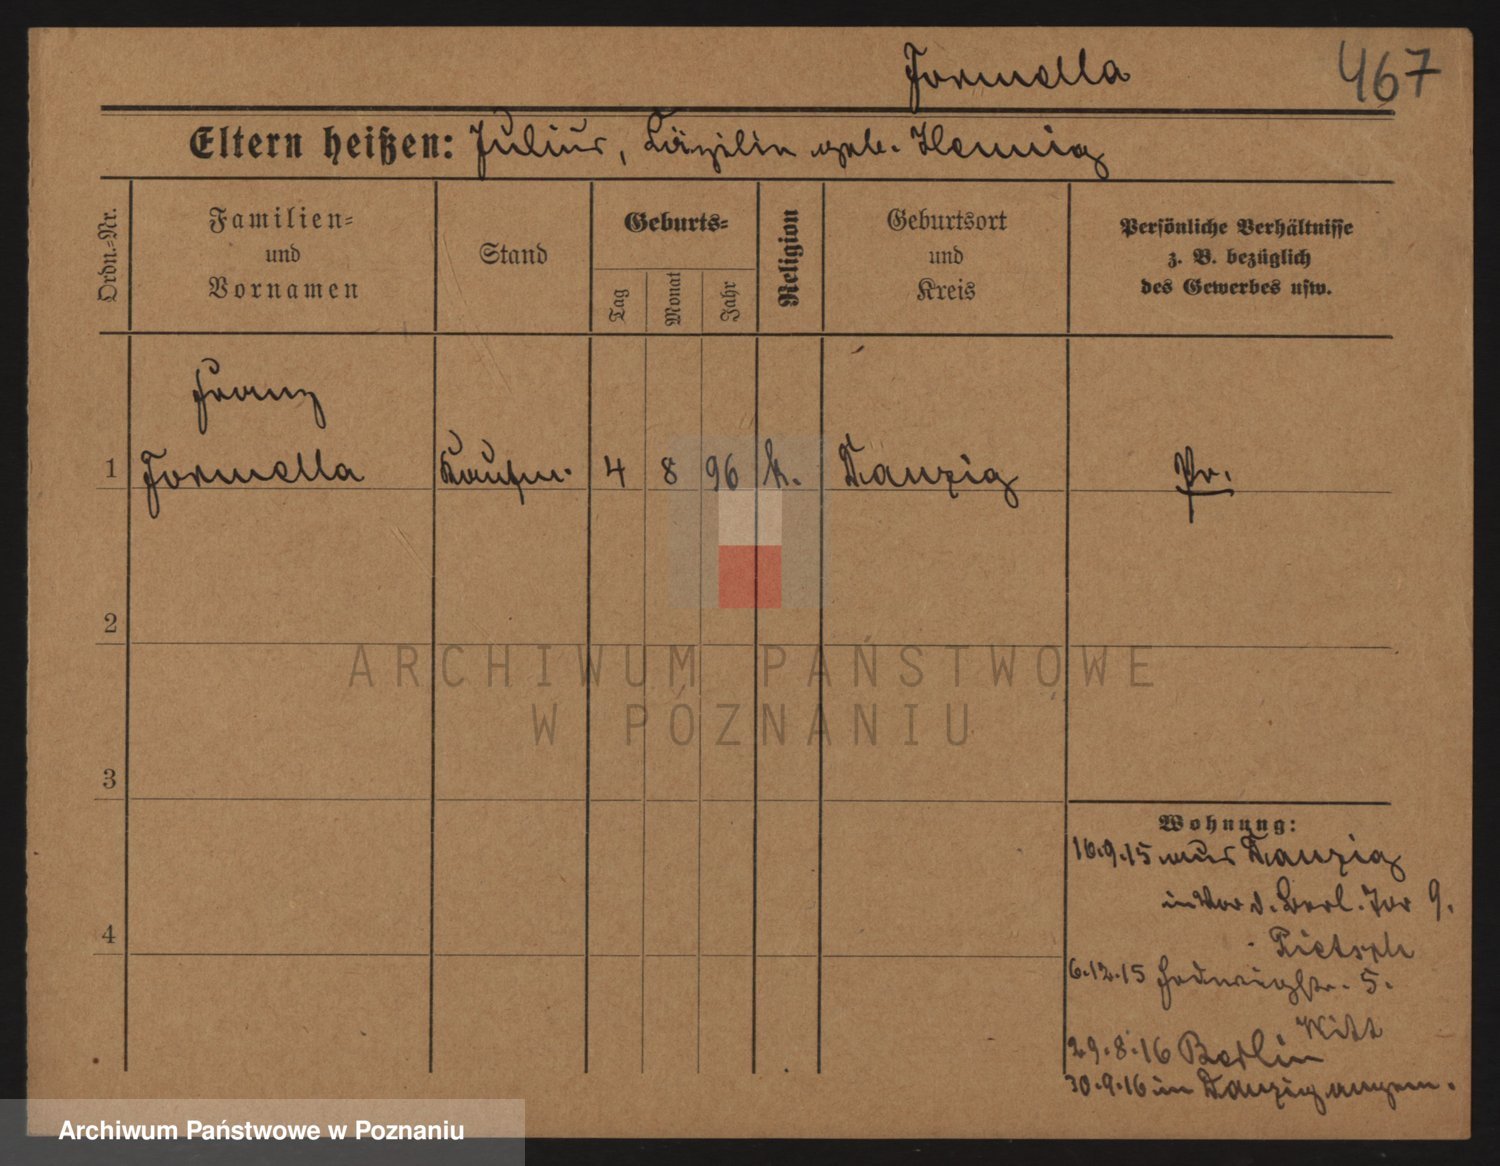 Formella
467
Eltern heißen: Julius, Cäzilie geb. Hennig
Ordn.-Nr.
Familien-
und
Vornamen
Stand
Geburts-
Tag
Monat
Jahr
Religion
Geburtsort
und
Kreis
Persönliche Verhältnisse
z. B. bezüglich
des Gewerbes usw.
Franz
1 Formella Kaufm. 4 8 96 k. Danzig Pr.
2
ARCHIWUM PAŃSTWOWE
W POZNANIU
3
Wohnung:
16.9.15 aus Danzig
in Vor d. Berl. Tor 9.
4
6.12.15 Hedwigstr. 5.
Witt
29.8.16 Berlin
30.9.16 in Danzig angem.
Archiwum Państwowe w Poznaniu